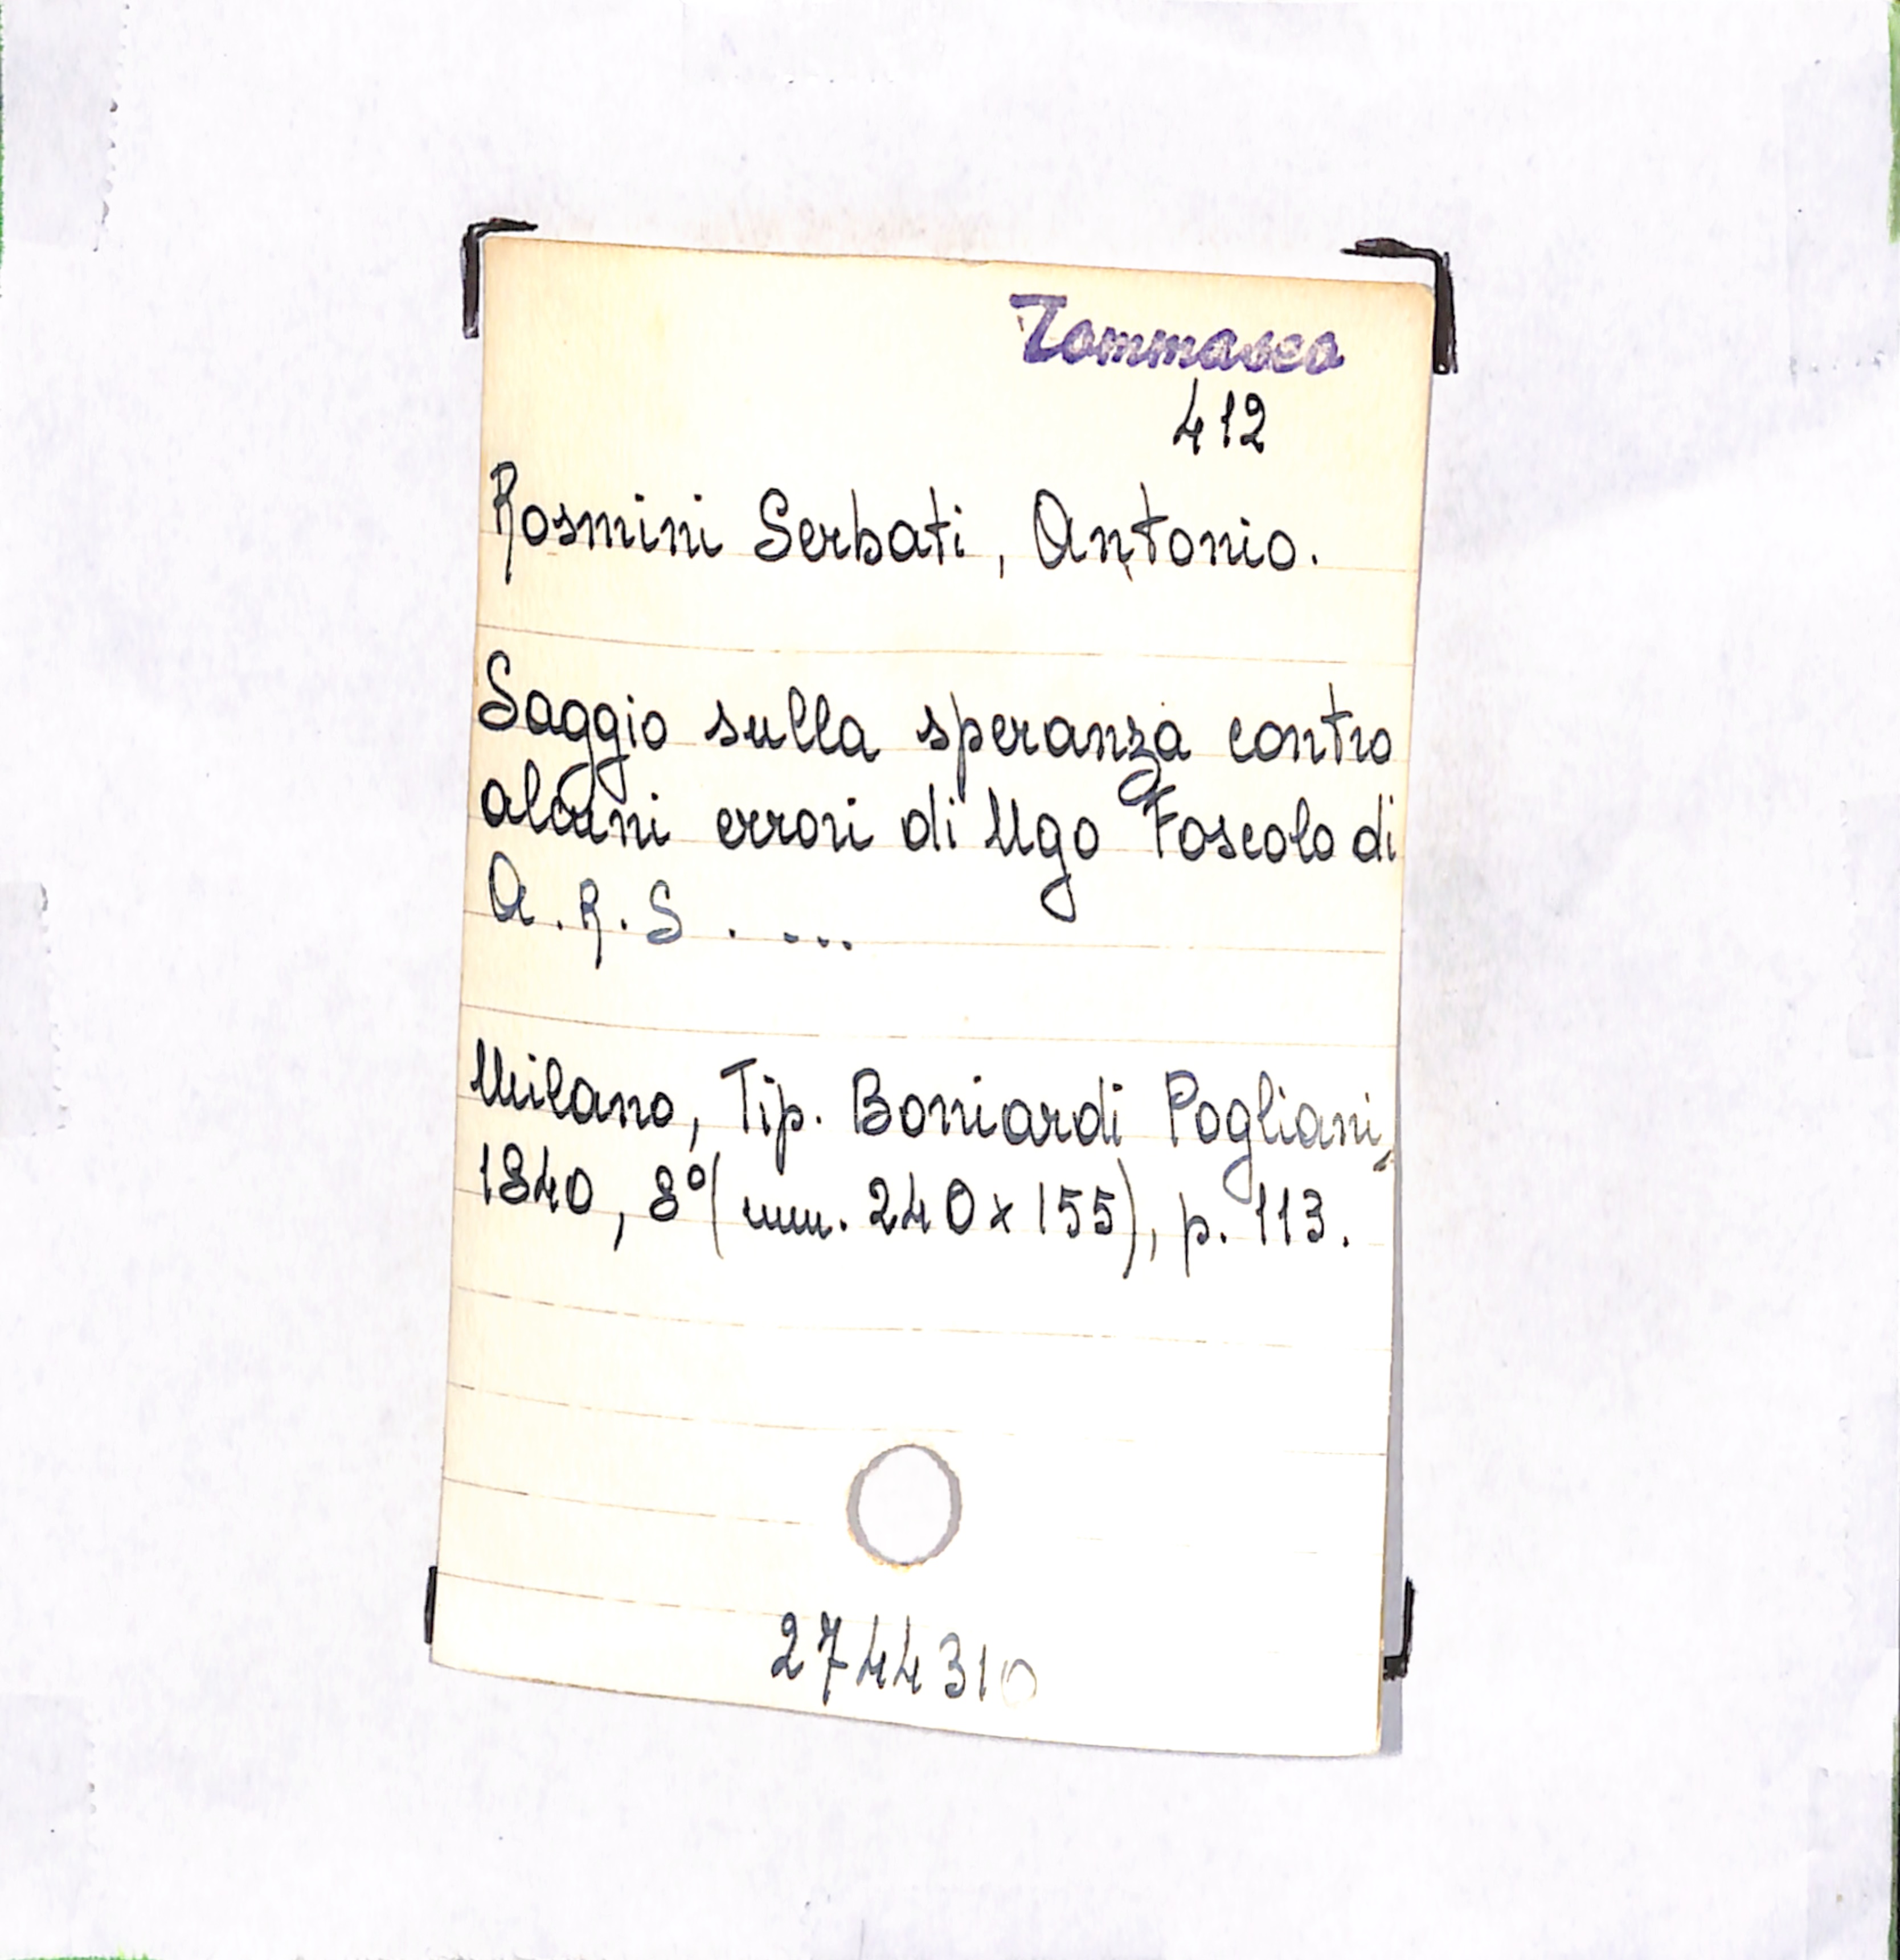 Tommaseo
412
Rosmini Serbati, Antonio.
Saggio sulla speranza contro
alcuni errori di Ugo Foscolo di
A.R.S. ...
Milano, Tip. Boniardi Pogliani,
1840, 8°(mm. 240x155), p. 113.
2744310